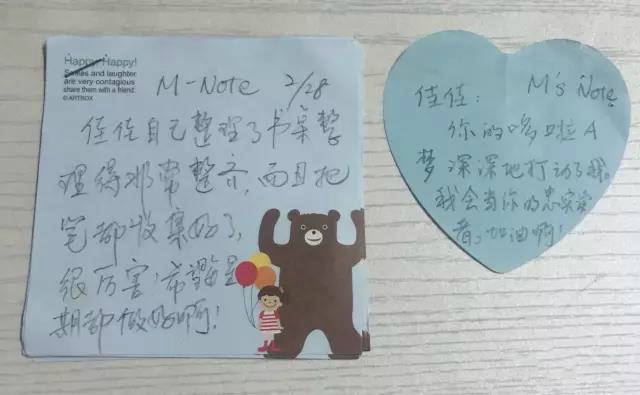 Happy Happy!
Smiles and laughter
are very contagious
share them with a friend.
©ARTBOX
M-Note 2/28
佳佳自己整理了书桌整
理得非常整齐,而且把
它都收集好了,
很厉害!希望星
期都做好啊!
佳佳: M's Note
你的哆啦A
梦深深地打动了我。
我会当你的忠实
者。加油啊!